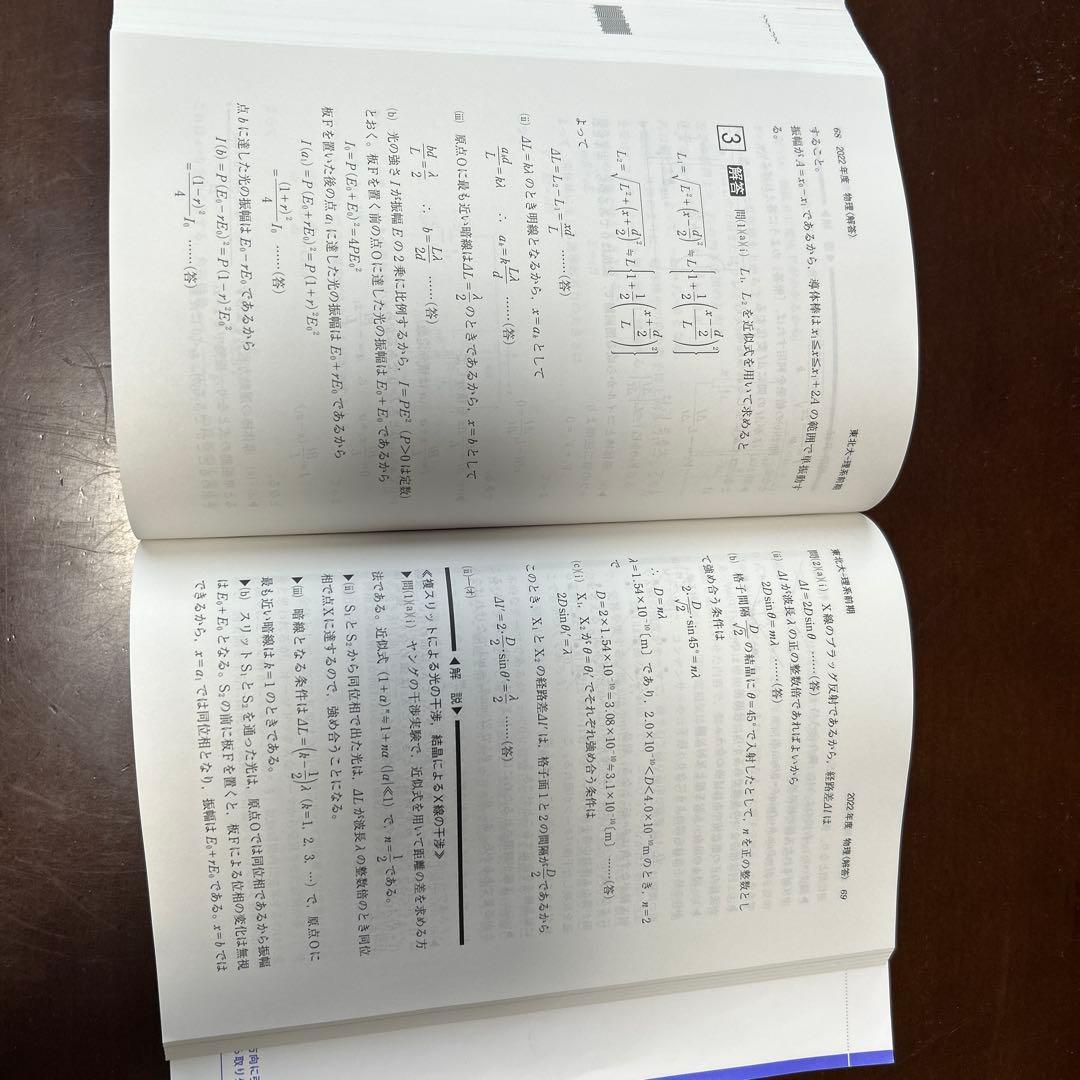 68 2022年度 物理〈解答〉 東北大-理系前期
すること。
振幅が A=x₀−x₁ であるから，導体棒は x₁≦x≦x₁+2A の範囲で単振動す
る。
3 解答 問(1)(a)(i) L₁，L₂ を近似式を用いて求めると
L₁=√(L²+(x−d/2)²)≒L{1+1/2((x−d/2)/L)²}
L₂=√(L²+(x+d/2)²)≒L{1+1/2((x+d/2)/L)²}
よって
ΔL=L₂−L₁=xd/L ……(答)
(ii) ΔL=kλ のとき明線となるから，x=aₖ として
aₖd/L=kλ ∴ aₖ=k Lλ/d ……(答)
(iii) 原点Oに最も近い暗線は ΔL=λ/2 のときであるから，x=b として
bd/L=λ/2 ∴ b=Lλ/2d ……(答)
(b) 光の強さ I が振幅 E の2乗に比例するから，I=PE² (P>0 は定数)
とおく。板Fを置く前の点Oに達した光の振幅は E₀+E₀ であるから
I₀=P(E₀+E₀)²=4PE₀²
板Fを置いた後の点 a₁ に達した光の振幅は E₀+rE₀ であるから
I(a₁)=P(E₀+rE₀)²=P(1+r)²E₀²
=(1+r)²/4 I₀ ……(答)
点 b に達した光の振幅は E₀−rE₀ であるから
I(b)=P(E₀−rE₀)²=P(1−r)²E₀²
=(1−r)²/4 I₀ ……(答)
東北大-理系前期 2022年度 物理〈解答〉 69
問(2)(a)(i) X線のブラッグ反射であるから，経路差 Δl は
Δl=2D sinθ ……(答)
(ii) Δl が波長 λ の正の整数倍であればよいから
2D sinθ=mλ ……(答)
(b) 格子間隔 D/√2 の結晶に θ=45° で入射したとして，n を正の整数とし
て強め合う条件は
2・D/√2・sin45°=nλ
∴ D=nλ
λ=1.54×10⁻¹⁰〔m〕であり，2.0×10⁻¹⁰<D<4.0×10⁻¹⁰m のとき，n=2
で
D=2×1.54×10⁻¹⁰=3.08×10⁻¹⁰≒3.1×10⁻¹⁰〔m〕 ……(答)
(c)(i) X₁，X₂ が θ=θ₁′ でそれぞれ強め合う条件は
2D sinθ₁′=λ
このとき，X₁ と X₂ の経路差 Δl′ は，格子面1と2の間隔が D/2 であるから
Δl′=2・D/2・sinθ′=λ/2 ……(答)
(ii)―(オ)
◀解 説▶
≪複スリットによる光の干渉，結晶によるX線の干渉≫
▶問(1)(a)(i) ヤングの干渉実験で，近似式を用いて距離の差を求める方
法である。近似式 (1+α)ⁿ≒1+nα (|α|≪1) で，n=1/2 である。
▶(ii) S₁ と S₂ から同位相で出た光は，ΔL が波長 λ の整数倍のとき同位
相で点Xに達するので，強め合うことになる。
▶(iii) 暗線となる条件は ΔL=(k−1/2)λ (k=1, 2, 3, …) で，原点Oに
最も近い暗線は k=1 のときである。
▶(b) スリット S₁ と S₂ を通った光は，原点Oでは同位相であるから振幅
は E₀+E₀ となる。S₂ の前に板Fを置くと，板Fによる位相の変化は無視
できるから，x=a₁ では同位相となり，振幅は E₀+rE₀ である。x=b では